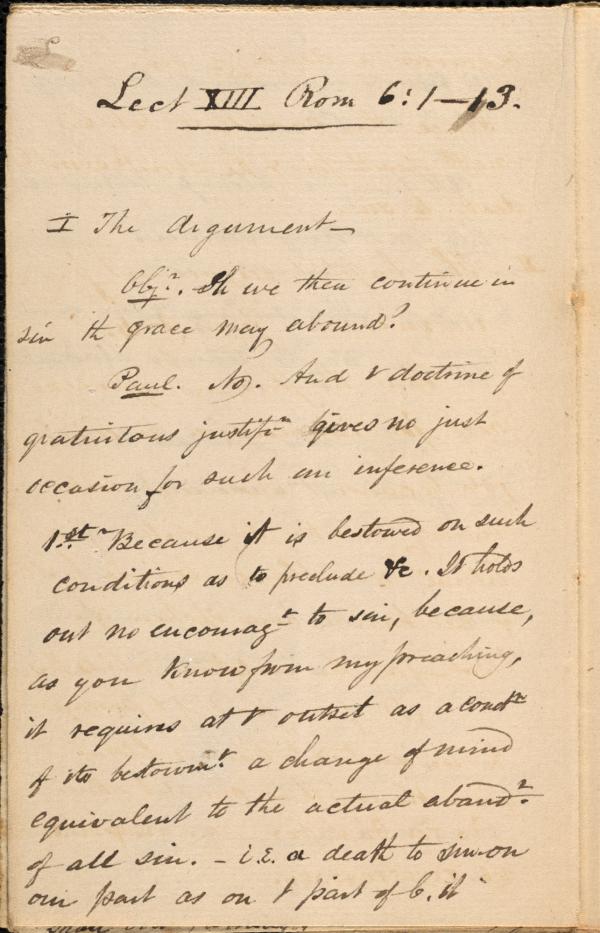 Lect XIII Rom 6:1—13.
I The argument—
Obj.n. Sh we then continue in
sin th grace may abound?
Paul. No. And & doctrine of
gratuitous justifi.n gives no just
occasion for such an inference.
1.st Because it is bestowed on such
conditions as to preclude &c. It holds
out no encourag.t to sin, because,
as you know from my preaching,
it requires at & outset as a cond.n
of its bestowm.t a change of mind
equivalent to the actual aband.t
of all sin. – i.e. a death to sin on
our part as on & part of C. it